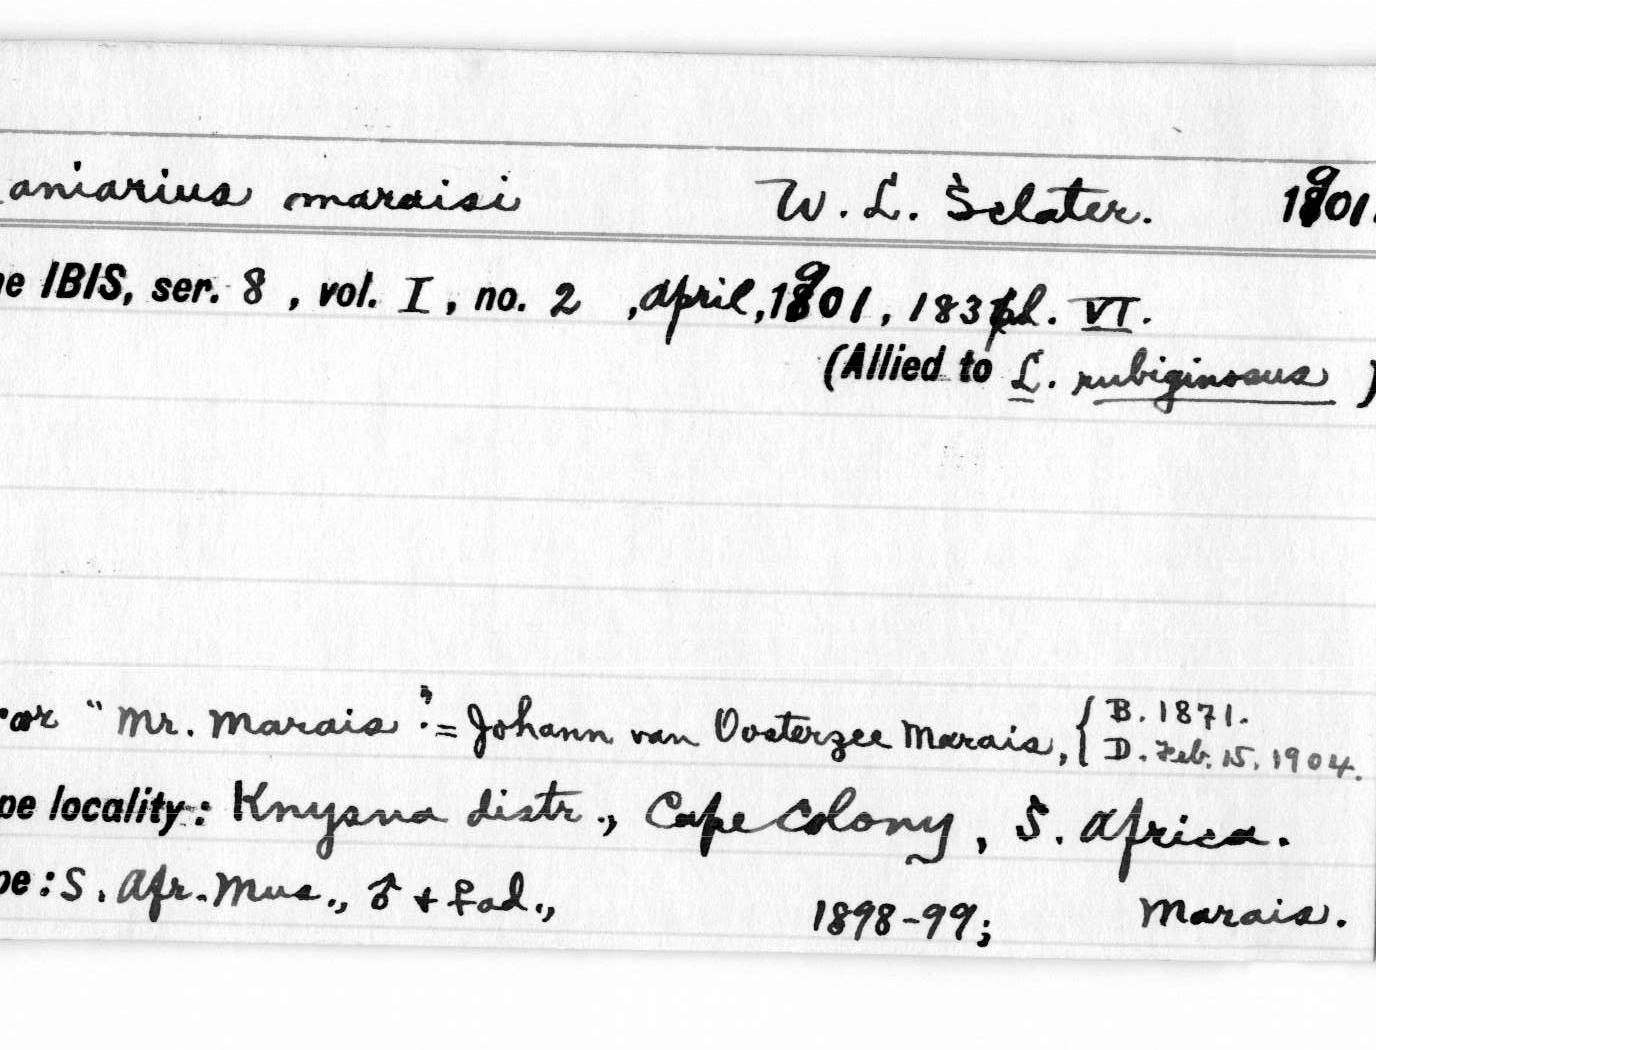 aniarius maraisi W. L. Sclater. 1901.
e IBIS, ser. 8, vol. I, no. 2, April, 1901, 183 pl. VI.
(Allied to L. rubiginosus)
or "Mr. Marais" = Johann van Oosterzee Marais, { B. 1871.
D. Feb. 15, 1904.
pe locality: Knysna distr., Cape Colony, S. Africa.
pe: S. Afr. Mus., ♂ + ♀ ad., 1898-99; Marais.